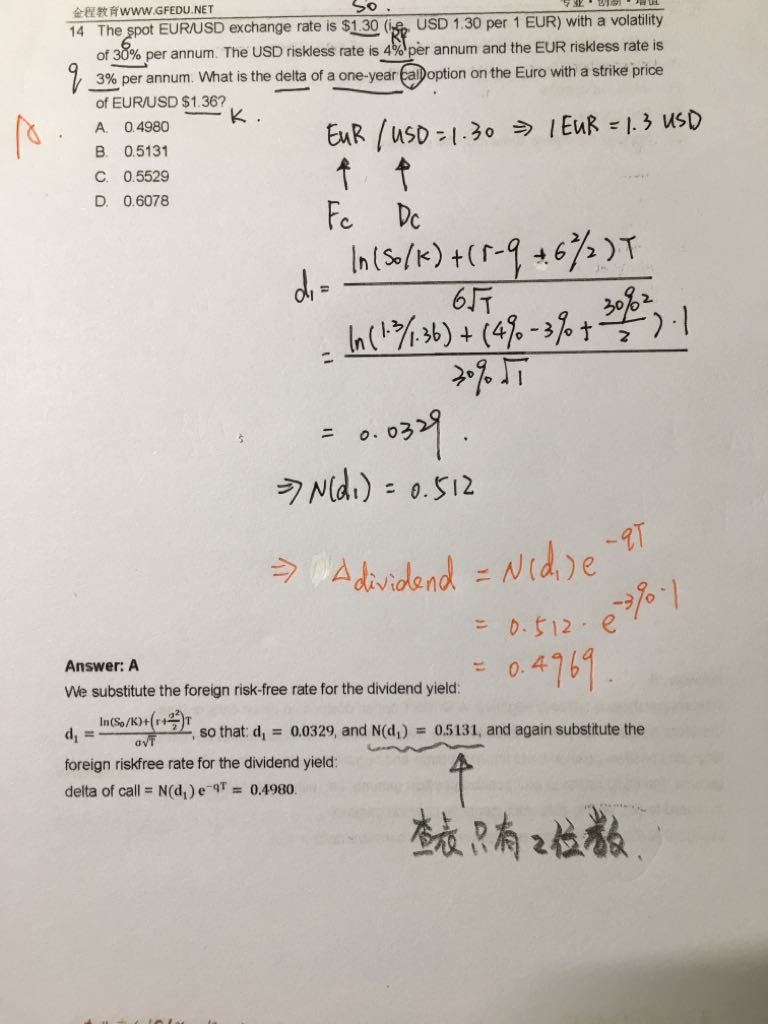 金程教育WWW.GFEDU.NET
专业·创新·增值
So.
14 The spot EUR/USD exchange rate is $1.30 (i.e. USD 1.30 per 1 EUR) with a volatility
6 Rf
of 30% per annum. The USD riskless rate is 4% per annum and the EUR riskless rate is
q 3% per annum. What is the delta of a one-year call option on the Euro with a strike price
of EUR/USD $1.36?
K.
A.
A. 0.4980
B. 0.5131
C. 0.5529
D. 0.6078
EUR / USD = 1.30 ⇒ 1 EUR = 1.3 USD
↑ ↑
Fc Dc
d₁ = ln(So/K) + (r-q + 6²/2) T / 6√T
= ln(1.3/1.36) + (4% - 3% + 30%²/2) · 1 / 30% √1
= 0.0329.
⇒ N(d₁) = 0.512
⇒ Δdividend = N(d₁)e^-qT
= 0.512 · e^-3%·1
= 0.4969.
Answer: A
We substitute the foreign risk-free rate for the dividend yield:
d₁ = ln(S₀/K)+(r+σ²/2)T / σ√T, so that: d₁ = 0.0329, and N(d₁) = 0.5131, and again substitute the
foreign riskfree rate for the dividend yield:
delta of call = N(d₁) e^-qT = 0.4980.
↑
查表只有2位数.